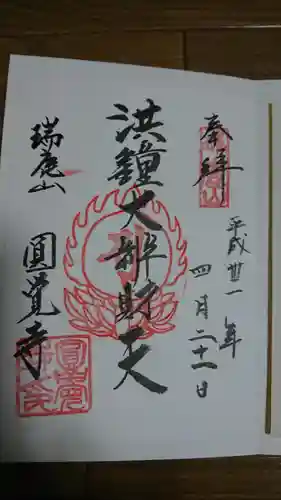 奉拝
平成廿一年
四月二十一日
洪鐘大辨財天
瑞鹿山
圓覺寺